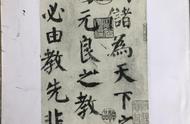 儲為天下
元良之教
必由教先非